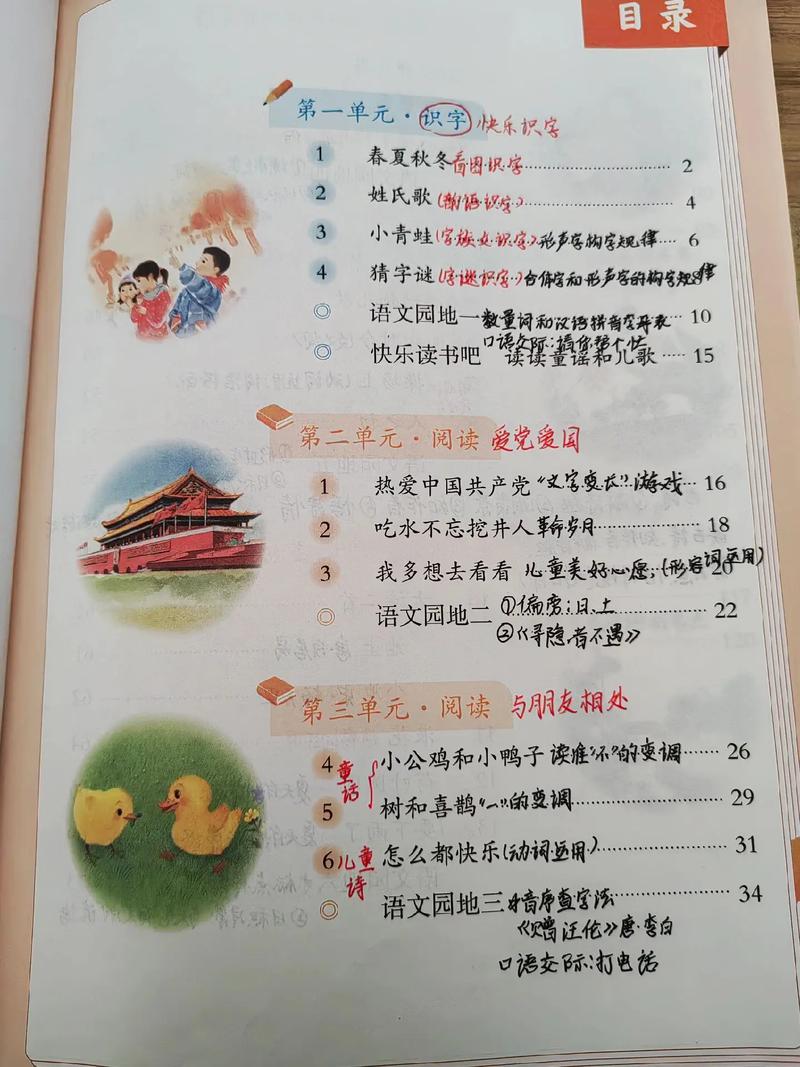 目录
第一单元·识字 快乐识字
1 春夏秋冬 看图识字 2
2 姓氏歌 (韵语识字) 4
3 小青蛙 (字族文识字) 形声字构字规律 6
4 猜字谜 (字谜识字) 合体字和形声字的构字规律 8
语文园地一 数量词和汉语拼音字母表 10
口语交际:请你帮个忙
快乐读书吧 读读童谣和儿歌 15
第二单元·阅读 爱党爱国
1 热爱中国共产党 "文字变长"游戏 16
2 吃水不忘挖井人 革命岁月 18
3 我多想去看看 儿童美好心愿;(形容词运用) 20
语文园地二 ①偏旁:日、土 22
②《寻隐者不遇》
第三单元·阅读 与朋友相处
童话
4 小公鸡和小鸭子 读准"不"的变调 26
5 树和喜鹊 "一"的变调 29
6 儿童诗 怎么都快乐 (动词运用) 31
语文园地三 音序查字法 34
《赠汪伦》唐·李白
口语交际:打电话